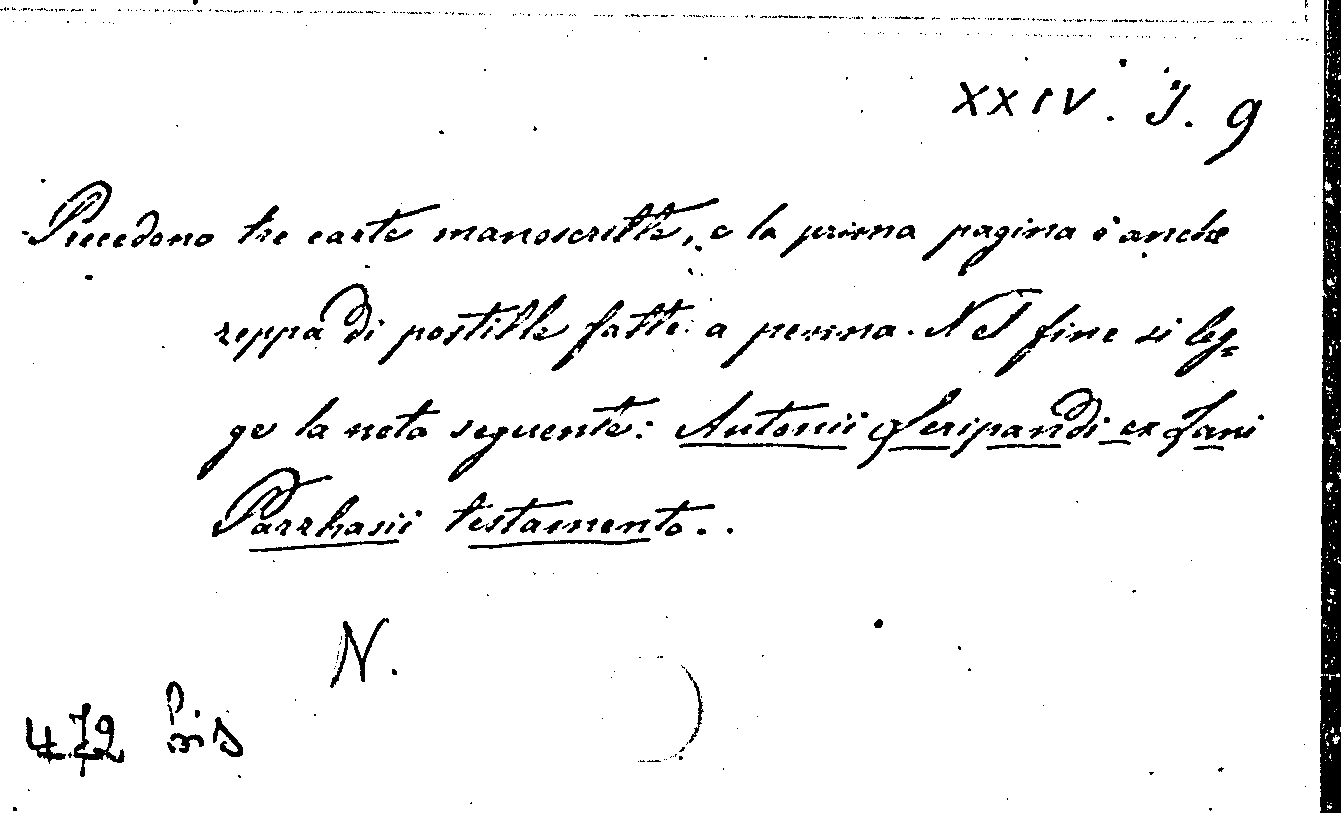 XXIV. J. 9
Precedono tre carte manoscritte, e la prima pagina è anche
zeppa di postille fatte a penna. Nel fine si leg=
ge la nota seguente: Antonii Seripandi ex Jani
Parrhasii testamento..
N.
472 bis